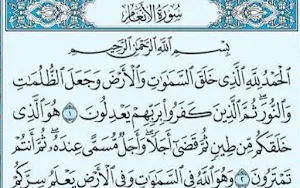 سُورَةُ الْأَنْعَامِ
بِسْمِ اللَّهِ الرَّحْمَٰنِ الرَّحِيمِ
الْحَمْدُ لِلَّهِ الَّذِي خَلَقَ السَّمَٰوَٰتِ وَالْأَرْضَ وَجَعَلَ الظُّلُمَٰتِ
وَالنُّورَ ۖ ثُمَّ الَّذِينَ كَفَرُوا بِرَبِّهِمْ يَعْدِلُونَ ١ هُوَ الَّذِي
خَلَقَكُم مِّن طِينٍ ثُمَّ قَضَىٰ أَجَلًا ۖ وَأَجَلٌ مُّسَمًّى عِندَهُ ۖ ثُمَّ أَنتُمْ
تَمْتَرُونَ ٢ وَهُوَ اللَّهُ فِي السَّمَٰوَٰتِ وَفِي الْأَرْضِ ۖ يَعْلَمُ سِرَّكُمْ